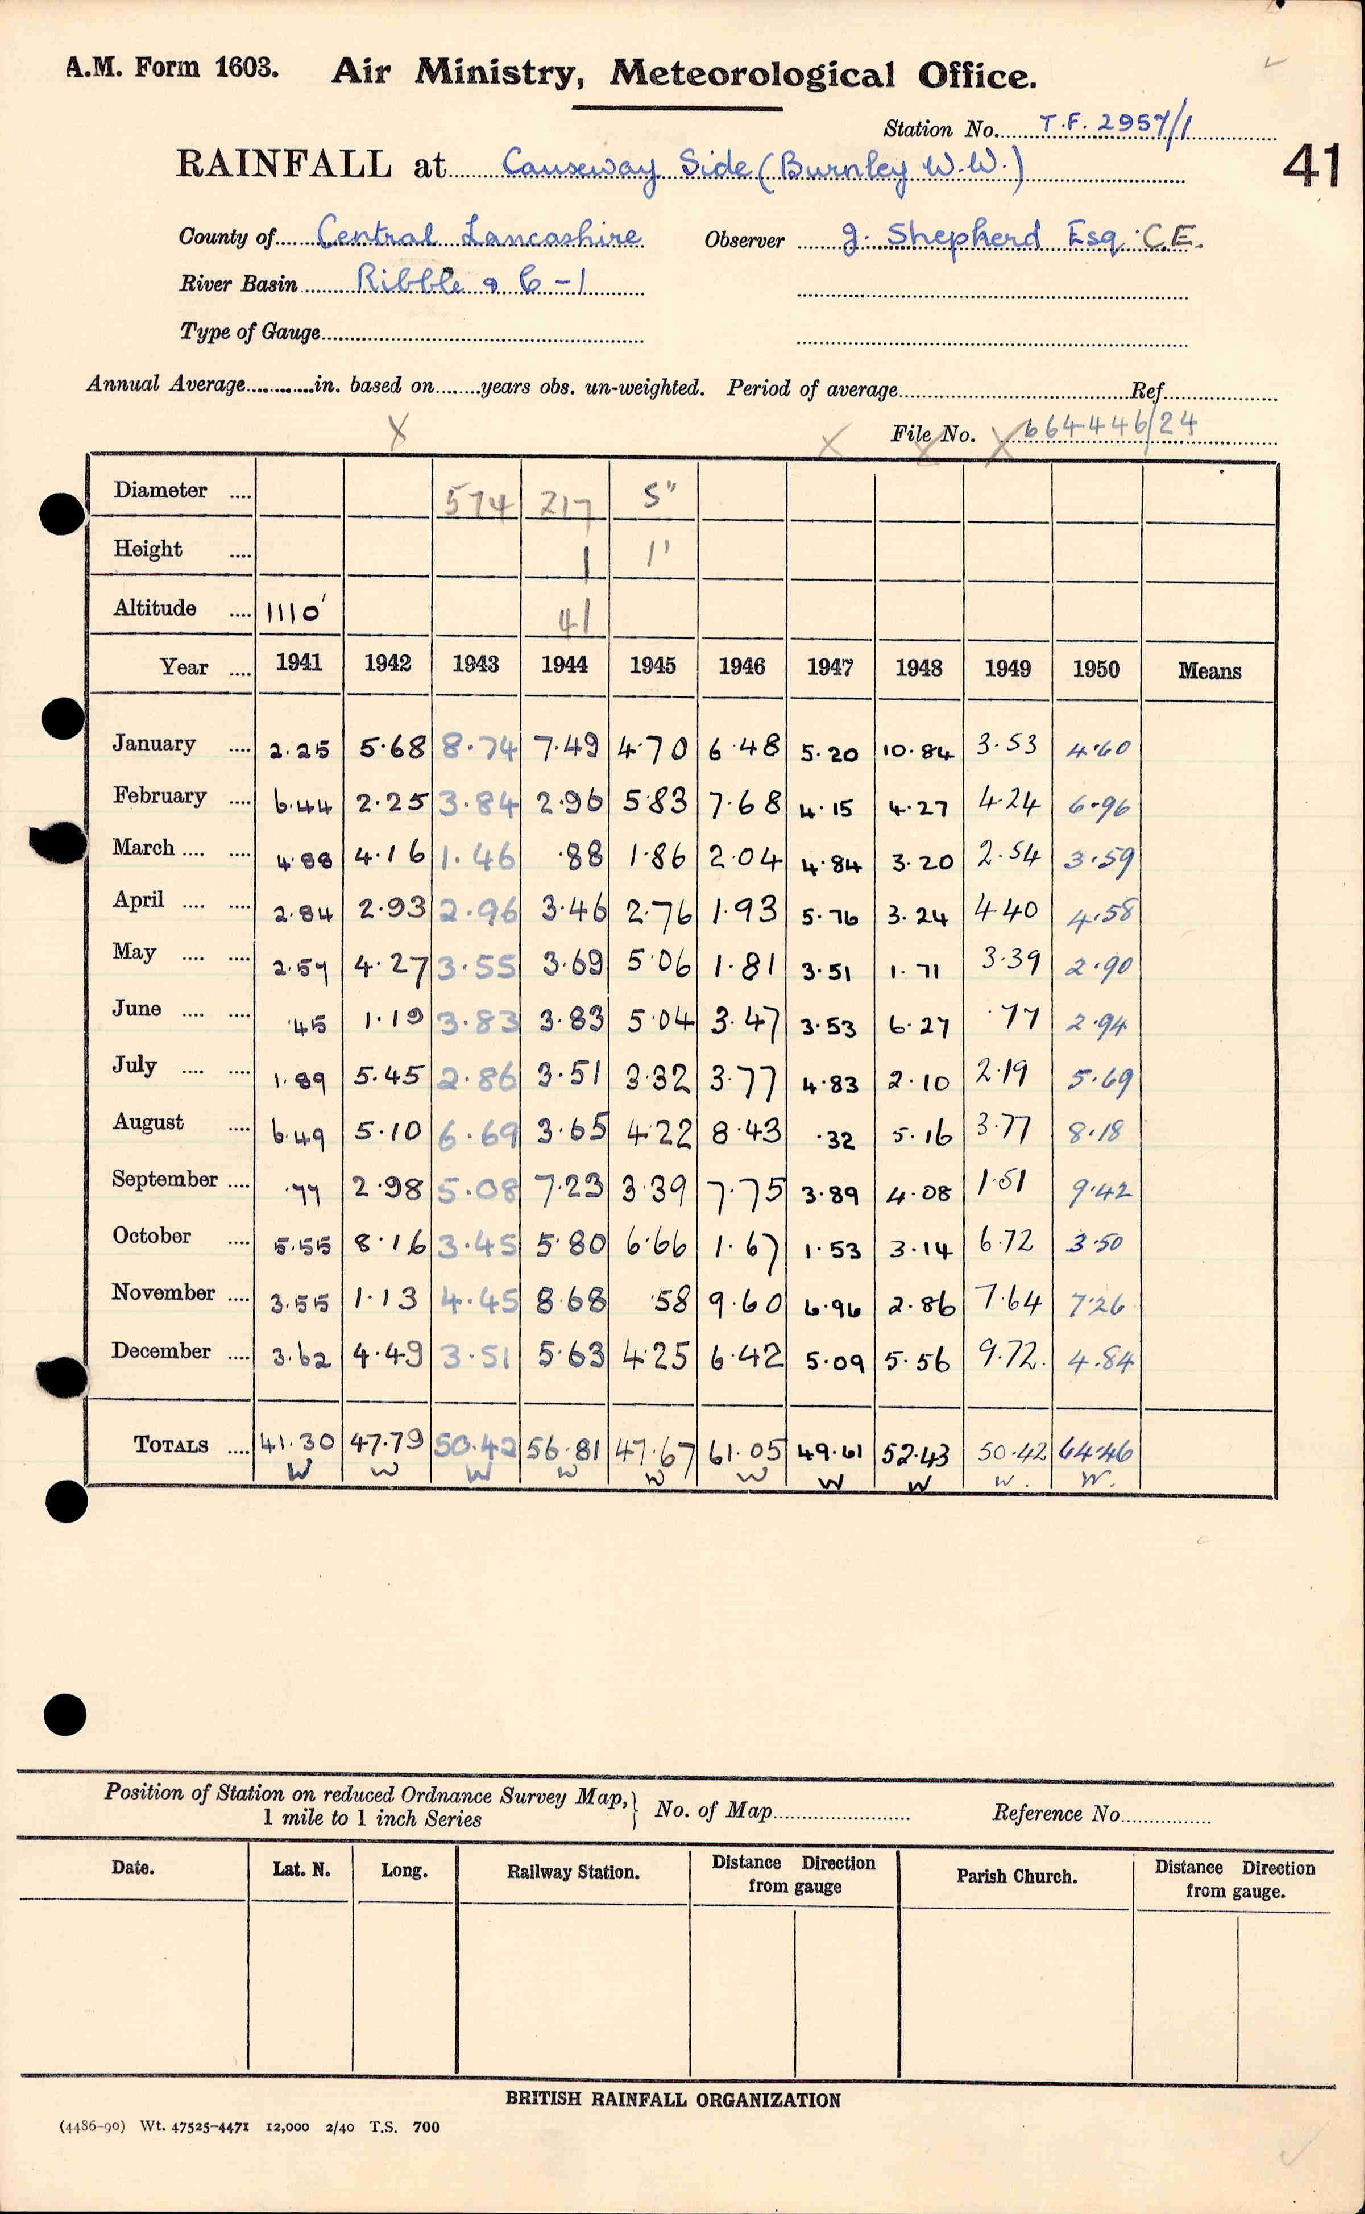 A.M. Form 1603. Air Ministry, Meteorological Office.
Station No. T.F. 2957/1
RAINFALL at Causeway Side (Burnley W.W.)
41
County of Central Lancashire Observer J. Shepherd Esq. C.E.
River Basin Ribble & 6-1
Type of Gauge
Annual Average in. based on years obs. un-weighted. Period of average Ref
File No. 664446/24
Diameter 574 217 5"
Height 1 1'
Altitude 1110' 41
Year 1941 1942 1943 1944 1945 1946 1947 1948 1949 1950 Means
January 2.25 5.68 8.74 7.49 4.70 6.48 5.20 10.84 3.53 4.60
February 6.44 2.25 3.84 2.96 5.83 7.68 4.15 4.27 4.24 6.96
March 4.88 4.16 1.46 .88 1.86 2.04 4.84 3.20 2.54 3.59
April 2.84 2.93 2.96 3.46 2.76 1.93 5.76 3.24 4.40 4.58
May 2.57 4.27 3.55 3.69 5.06 1.81 3.51 1.71 3.39 2.90
June .45 1.19 3.83 3.83 5.04 3.47 3.53 6.27 .77 2.94
July 1.89 5.45 2.86 3.51 3.32 3.77 4.83 2.10 2.19 5.69
August 6.49 5.10 6.69 3.65 4.22 8.43 .32 5.16 3.77 8.18
September .77 2.98 5.08 7.23 3.39 7.75 3.89 4.08 1.51 9.42
October 5.55 8.16 3.45 5.80 6.66 1.67 1.53 3.14 6.72 3.50
November 3.55 1.13 4.45 8.68 .58 9.60 6.96 2.86 7.64 7.26
December 3.62 4.49 3.51 5.63 4.25 6.42 5.09 5.56 9.72 4.84
TOTALS 41.30 47.79 50.42 56.81 47.67 61.05 49.61 52.43 50.42 64.46
W W W W W W W W W. W.
Position of Station on reduced Ordnance Survey Map,
1 mile to 1 inch Series
No. of Map Reference No.
Date. Lat. N. Long. Railway Station. Distance Direction from gauge Parish Church. Distance Direction from gauge.
BRITISH RAINFALL ORGANIZATION
(4486-90) Wt. 47525-4471 12,000 2/40 T.S. 700